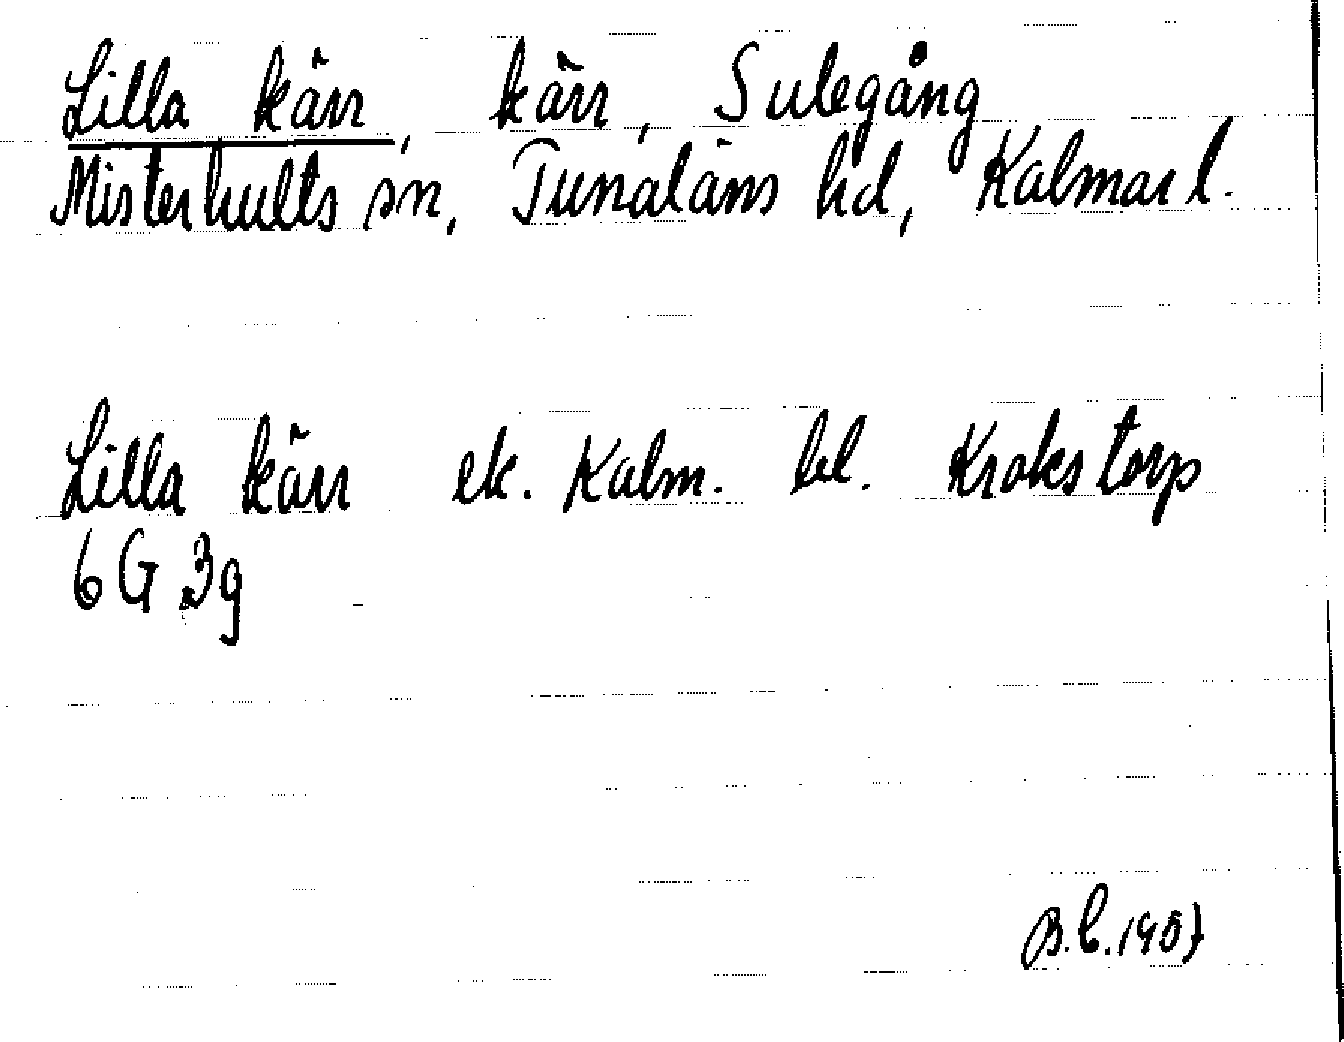 Lilla kärr, kärr, Sulegång
Misterhults sn, Tunaläns hd, Kalmar l.
Lilla kärr ek. Kalm. bl. Krokstorp
6G 3g
B.C. 1957